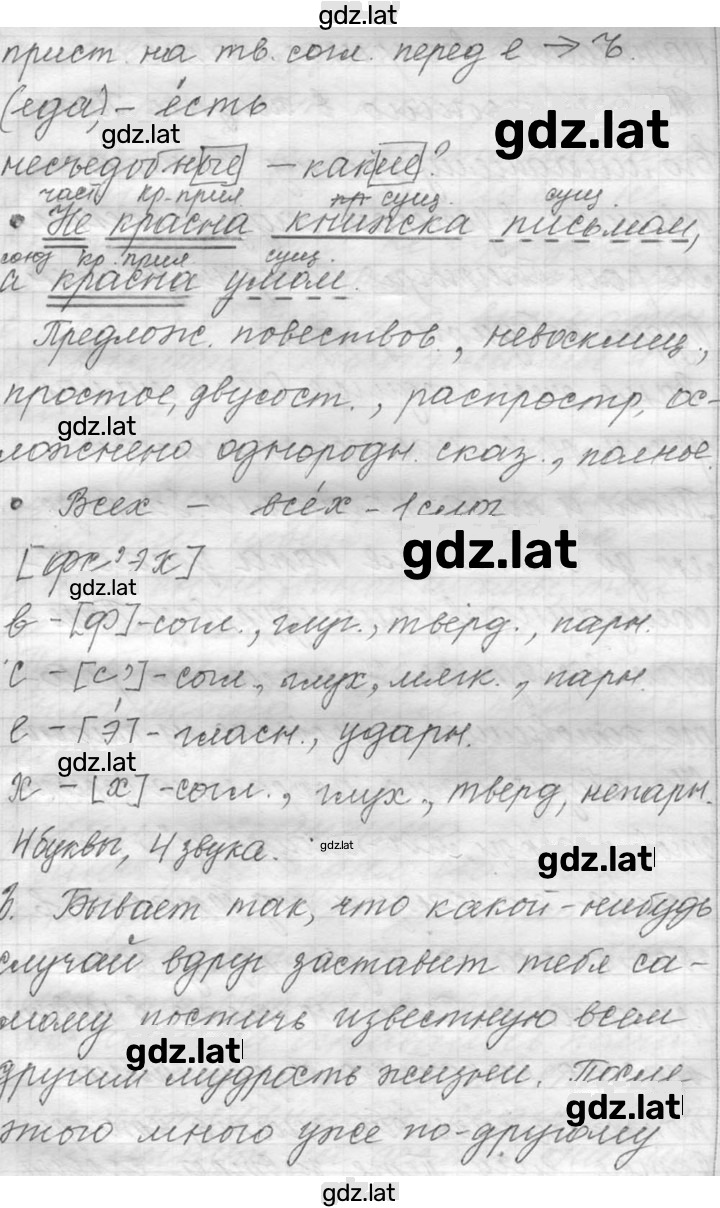 gdz.lat
прист. на тв. согл. перед е → ъ.
(еда) - е́сть
gdz.lat
gdz.lat
несъедобные - какие?
част. кр. прил. сущ. сущ.
• Не красна книжка письмом,
союз кр. прил. сущ.
а красна умом.
Предлож. повествов., невосклиц.,
простое, двусост., распростр, ос-
gdz.lat
ложнено однородн. сказ., полное.
• Всех - все́х - 1 слог
gdz.lat
[фс'эх]
gdz.lat
в - [ф] - согл., глух., тверд., парн.
с - [с'] - согл., глух, мягк., парн.
е - [э́] - гласн., ударн.
gdz.lat
х - [х] - согл., глух., тверд, непарн.
4 буквы, 4 звука.
gdz.lat
gdz.lat
Бывает так, что какой-нибудь
случай вдруг заставит тебя са-
мому постичь известную всем
gdz.lat
другим мудрость жизни. После
gdz.lat
этого много уже по-другому
gdz.lat